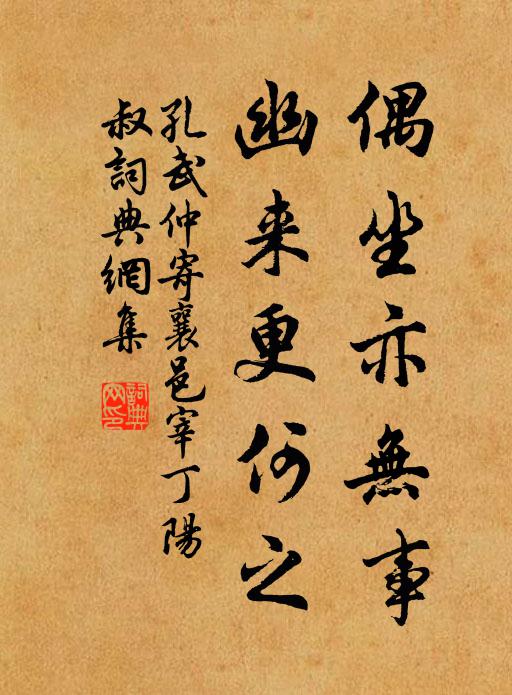 偶坐亦無事
幽来更何之
孔武仲寄襄邑宰丁陽
叔詞典網集
詞典網印